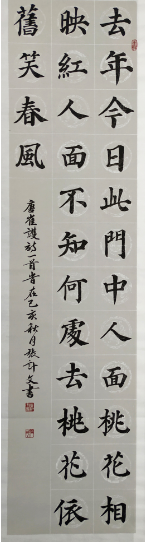 去年今日此門中人面桃花相
映紅人面不知何處去桃花依
舊笑春風
唐崔護詩一首岁在己亥秋月張許文書